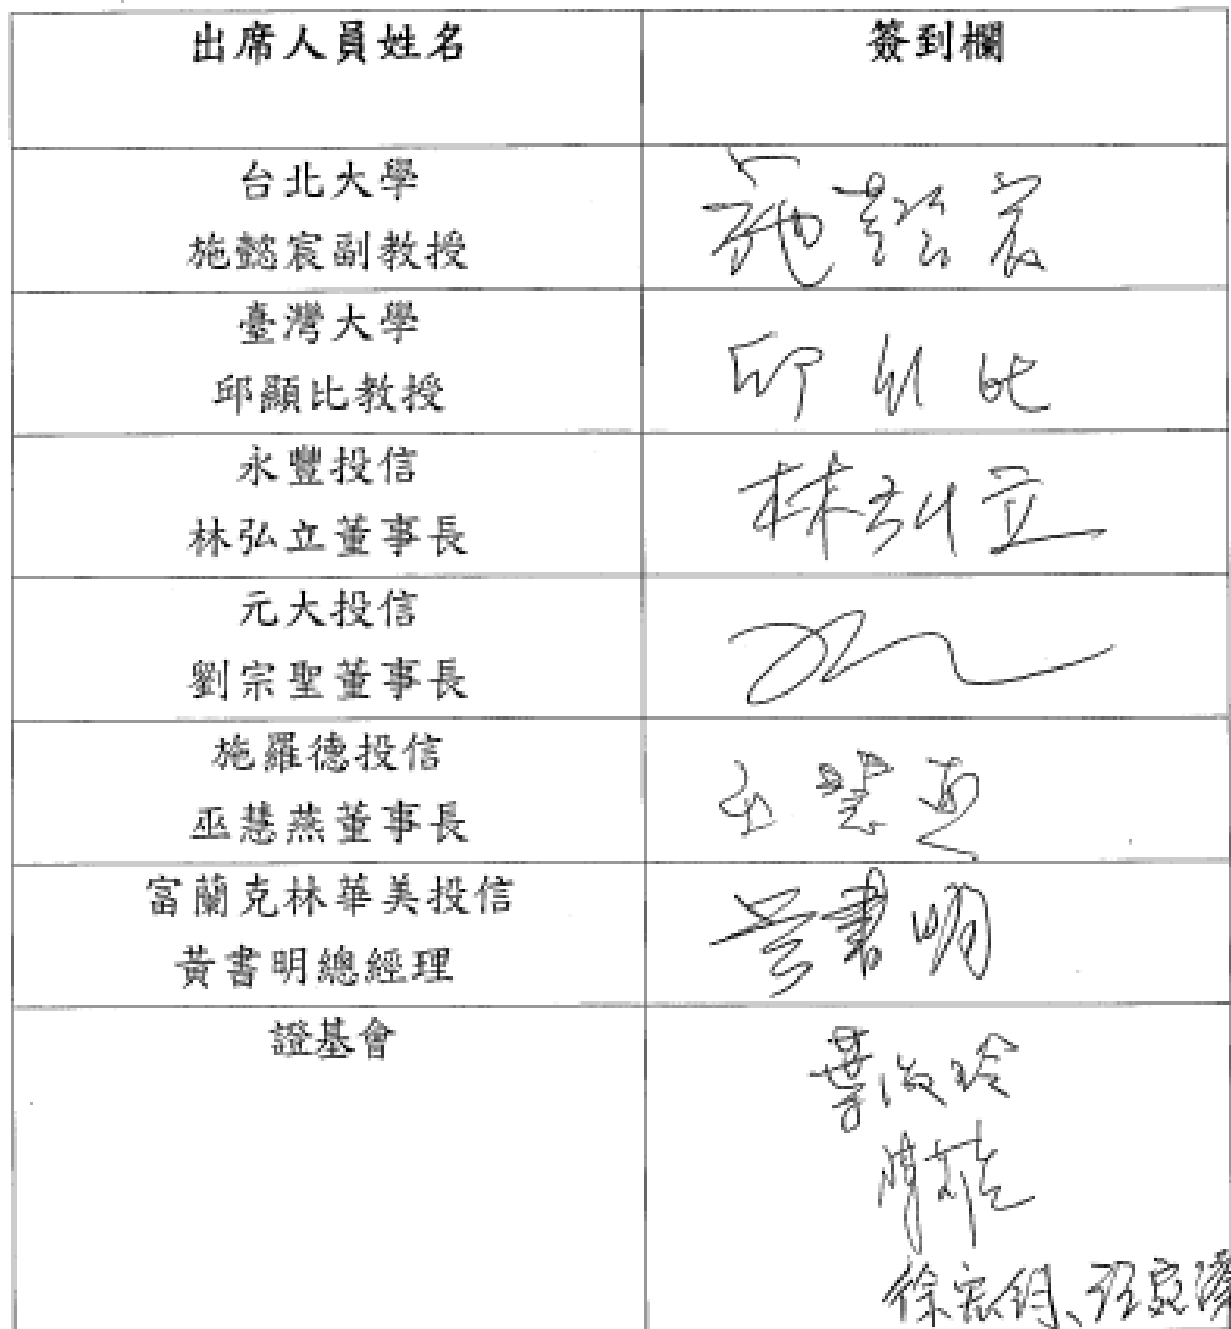 出席人員姓名
簽到欄
台北大學
施懿宸副教授
施懿宸
臺灣大學
邱顯比教授
邱顯比
永豐投信
林弘立董事長
林弘立
元大投信
劉宗聖董事長
施羅德投信
巫慧燕董事長
巫慧燕
富蘭克林華美投信
黃書明總經理
黃書明
證基會
葉淑玲